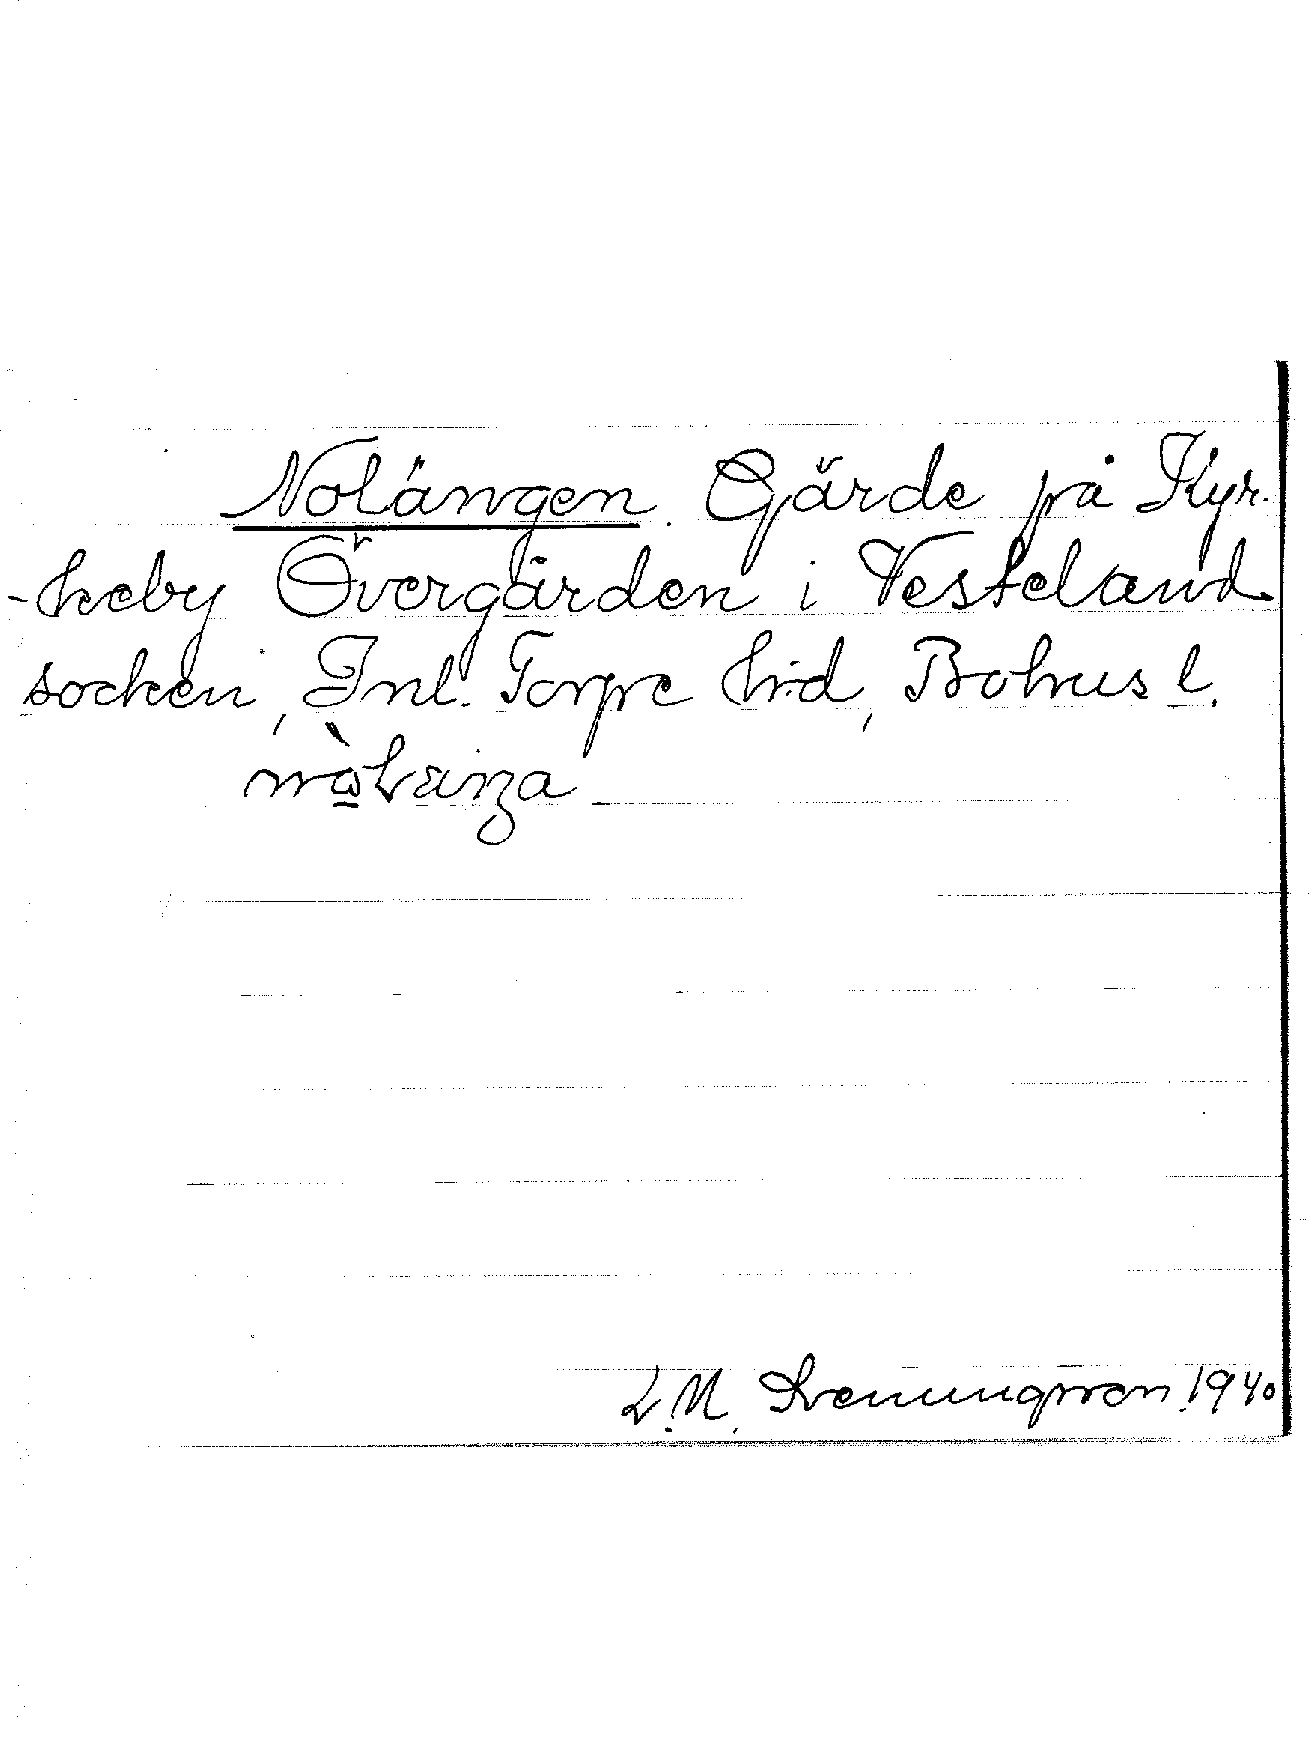 Nolängen. Gärde på Kyr-
-keby Övergården i Vesteland
socken, Inl. Torpe hrd, Bohus l.
L. M. Svenungsson 1940